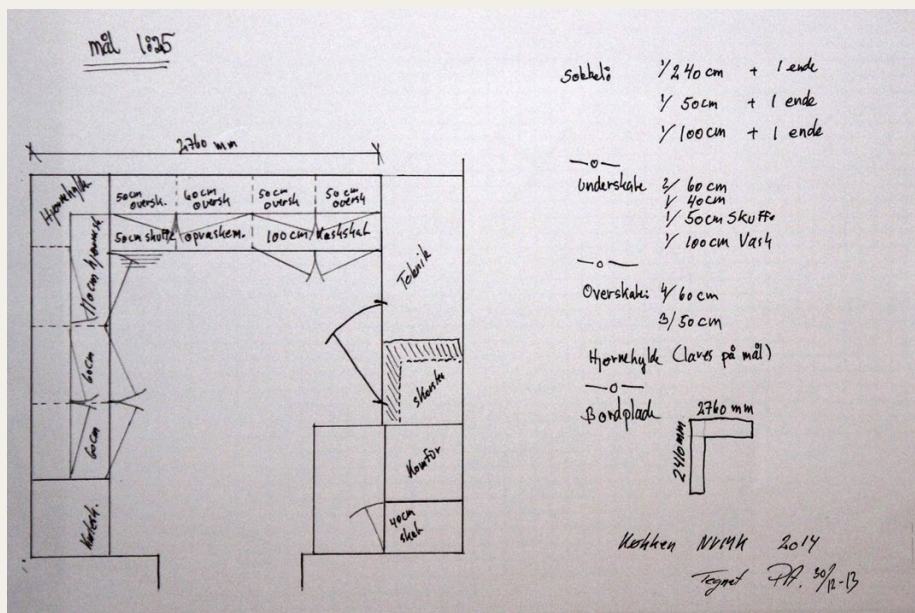 mål 1:25
2760 mm
Hjørnehylde
50cm oversk.
60cm oversk
50cm oversk
50cm oversk
50cm skuffe
opvaskem.
100cm Vaskskab
110cm hjørnesk.
60cm
60cm
Teknik
Komfur
40cm skab
Sokkel:
1/ 240 cm + 1 ende
1/ 50cm + 1 ende
1/ 100cm + 1 ende
Underskabe 2/ 60 cm
1/ 40cm
1/ 50cm Skuffe
1/ 100cm Vask
Overskabe: 4/ 60cm
3/ 50cm
Hjørnehylde (laves på mål)
Bordplade
2760 mm
2410mm
Køkken 2014
Tegnet PA. 30/12-13